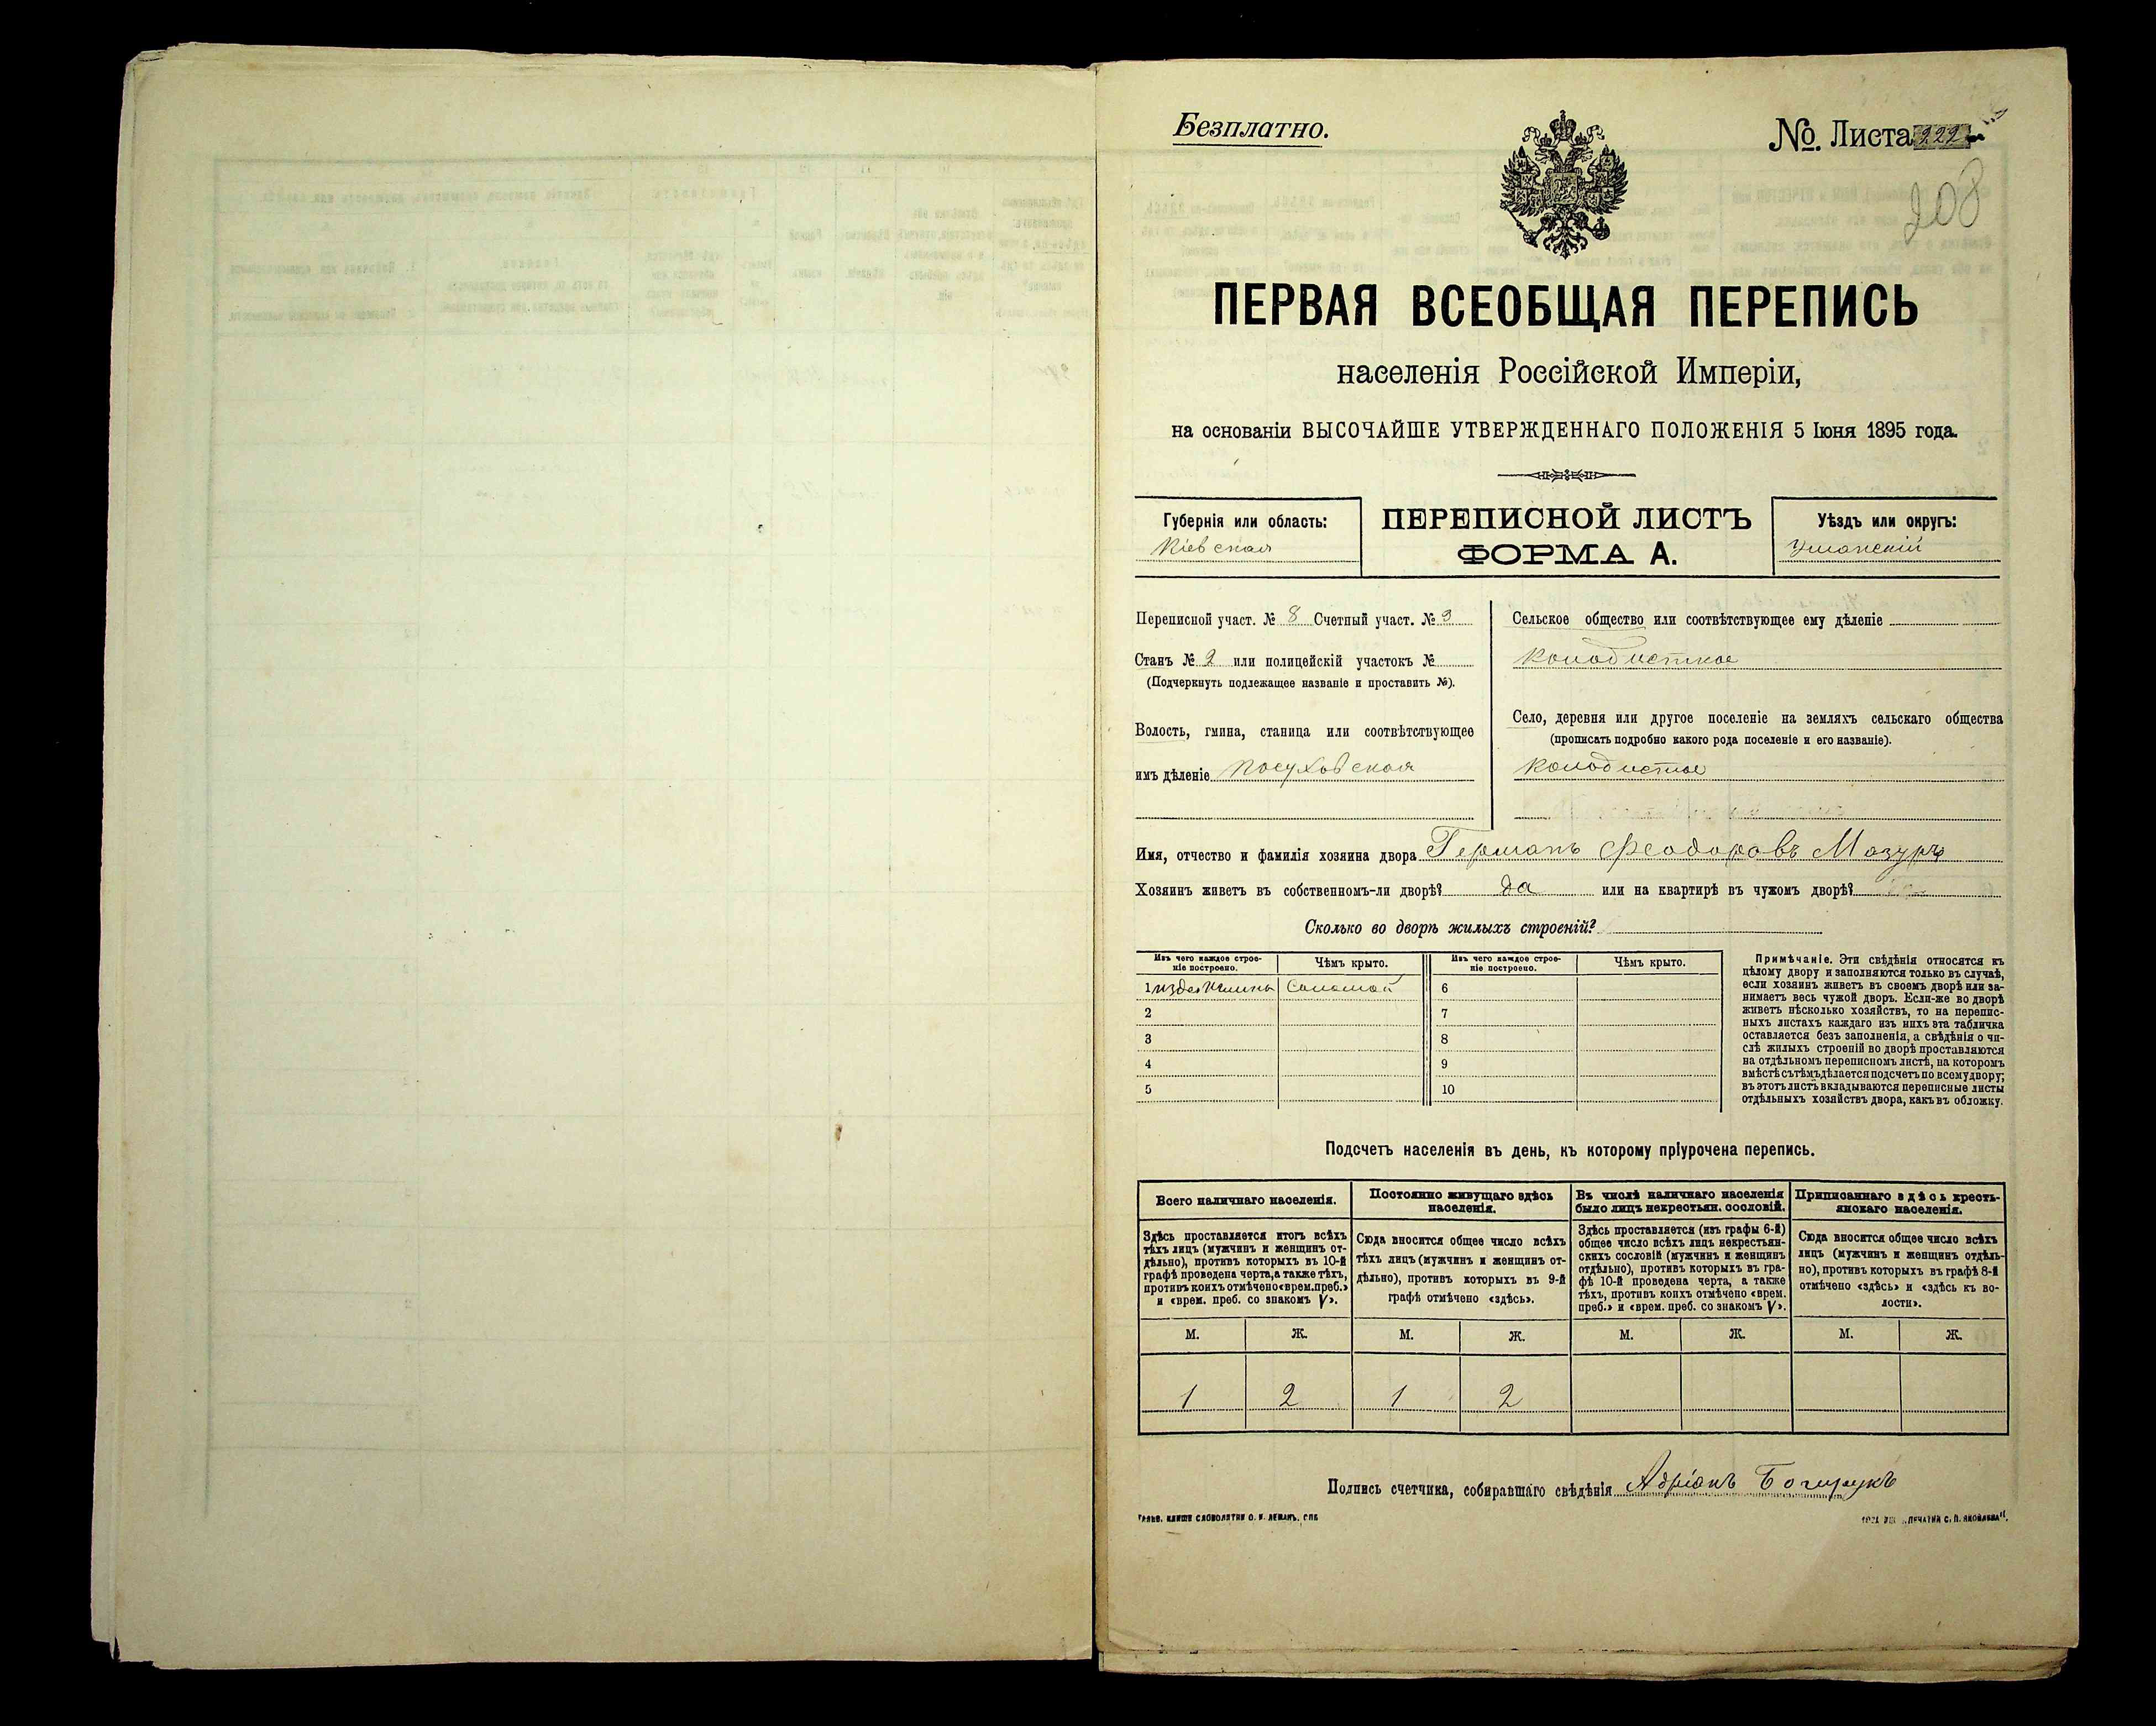 Безплатно.
№. Листа 222
208
ПЕРВАЯ ВСЕОБЩАЯ ПЕРЕПИСЬ
населенія Россійской Имперіи,
на основаніи ВЫСОЧАЙШЕ УТВЕРЖДЕННАГО ПОЛОЖЕНІЯ 5 Іюня 1895 года.
Губернія или область:
Кіевская
ПЕРЕПИСНОЙ ЛИСТЪ
ФОРМА А.
Уѣздъ или округъ:
Уманскій
Переписной участ. № 8 Счетный участ. № 3
Станъ № 2 или полицейскій участокъ №
(Подчеркнуть подлежащее названіе и проставить №).
Волость, гмина, станица или соотвѣтствующее
имъ дѣленіе Посуховская
Сельское общество или соотвѣтствующее ему дѣленіе
Колодисткое
Село, деревня или другое поселеніе на земляхъ сельскаго общества
(прописать подробно какого рода поселеніе и его названіе).
Колодистое
Имя, отчество и фамилія хозяина двора Германъ Феодоровъ Мазуръ
Хозяинъ живетъ въ собственномъ-ли дворѣ? да или на квартирѣ въ чужомъ дворѣ?
Сколько во дворѣ жилыхъ строеній?
Изъ чего каждое строе-
ніе построено.
Чѣмъ крыто.
Изъ чего каждое строе-
ніе построено.
Чѣмъ крыто.
1 Соломой 6
2 7
3 8
4 9
5 10
Примѣчаніе. Эти свѣдѣнія относятся къ
цѣлому двору и заполняются только въ случаѣ,
если хозяинъ живетъ въ своемъ дворѣ или за-
нимаетъ весь чужой дворъ. Если-же во дворѣ
живетъ нѣсколько хозяйствъ, то на перепис-
ныхъ листахъ каждаго изъ нихъ эта табличка
оставляется безъ заполненія, а свѣдѣнія о чи-
слѣ жилыхъ строеній во дворѣ проставляются
на отдѣльномъ переписномъ листѣ, на которомъ
вмѣстѣ съ тѣмъ дѣлается подсчетъ по всему двору;
въ этотъ листъ вкладываются переписные листы
отдѣльныхъ хозяйствъ двора, какъ въ обложку.
Подсчетъ населенія въ день, къ которому пріурочена перепись.
Всего наличнаго населенія.
Здѣсь проставляется итогъ всѣхъ
тѣхъ лицъ (мужчинъ и женщинъ от-
дѣльно), противъ которыхъ въ 10-й
графѣ проведена черта, а также тѣхъ,
противъ коихъ отмѣчено «врем. преб.»
и «врем. преб. со знакомъ V».
Постоянно живущаго здѣсь
населенія.
Сюда вносится общее число всѣхъ
тѣхъ лицъ (мужчинъ и женщинъ от-
дѣльно), противъ которыхъ въ 9-й
графѣ отмѣчено «здѣсь».
Въ числѣ наличнаго населенія
было лицъ некрестьян. сословій.
Здѣсь проставляется (изъ графы 6-й)
общее число всѣхъ лицъ некрестьян-
скихъ сословій (мужчинъ и женщинъ
отдѣльно), противъ которыхъ въ гра-
фѣ 10-й проведена черта, а также
тѣхъ, противъ коихъ отмѣчено «врем.
преб.» и «врем. преб. со знакомъ V».
Приписаннаго здѣсь кресть-
янскаго населенія.
Сюда вносится общее число всѣхъ
лицъ (мужчинъ и женщинъ отдѣль-
но), противъ которыхъ въ графѣ 8-й
отмѣчено «здѣсь» и «здѣсь къ во-
лости».
М. Ж. М. Ж. М. Ж. М. Ж.
1 2 1 2
Подпись счетчика, собиравшаго свѣдѣнія Адріанъ